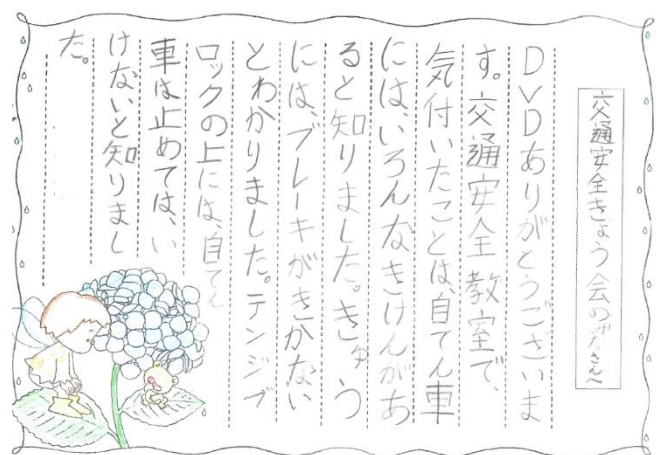 交通安全きょう会のみなさんへ
DVDありがとうございま
す。交通安全教室で、
気付いたことは、自てん車
には、いろんなきけんがあ
ると知りました。きゅう
には、ブレーキがきかない
とわかりました。テンジブ
ロックの上には、自てん
車は止めては、い
けないと知りまし
た。